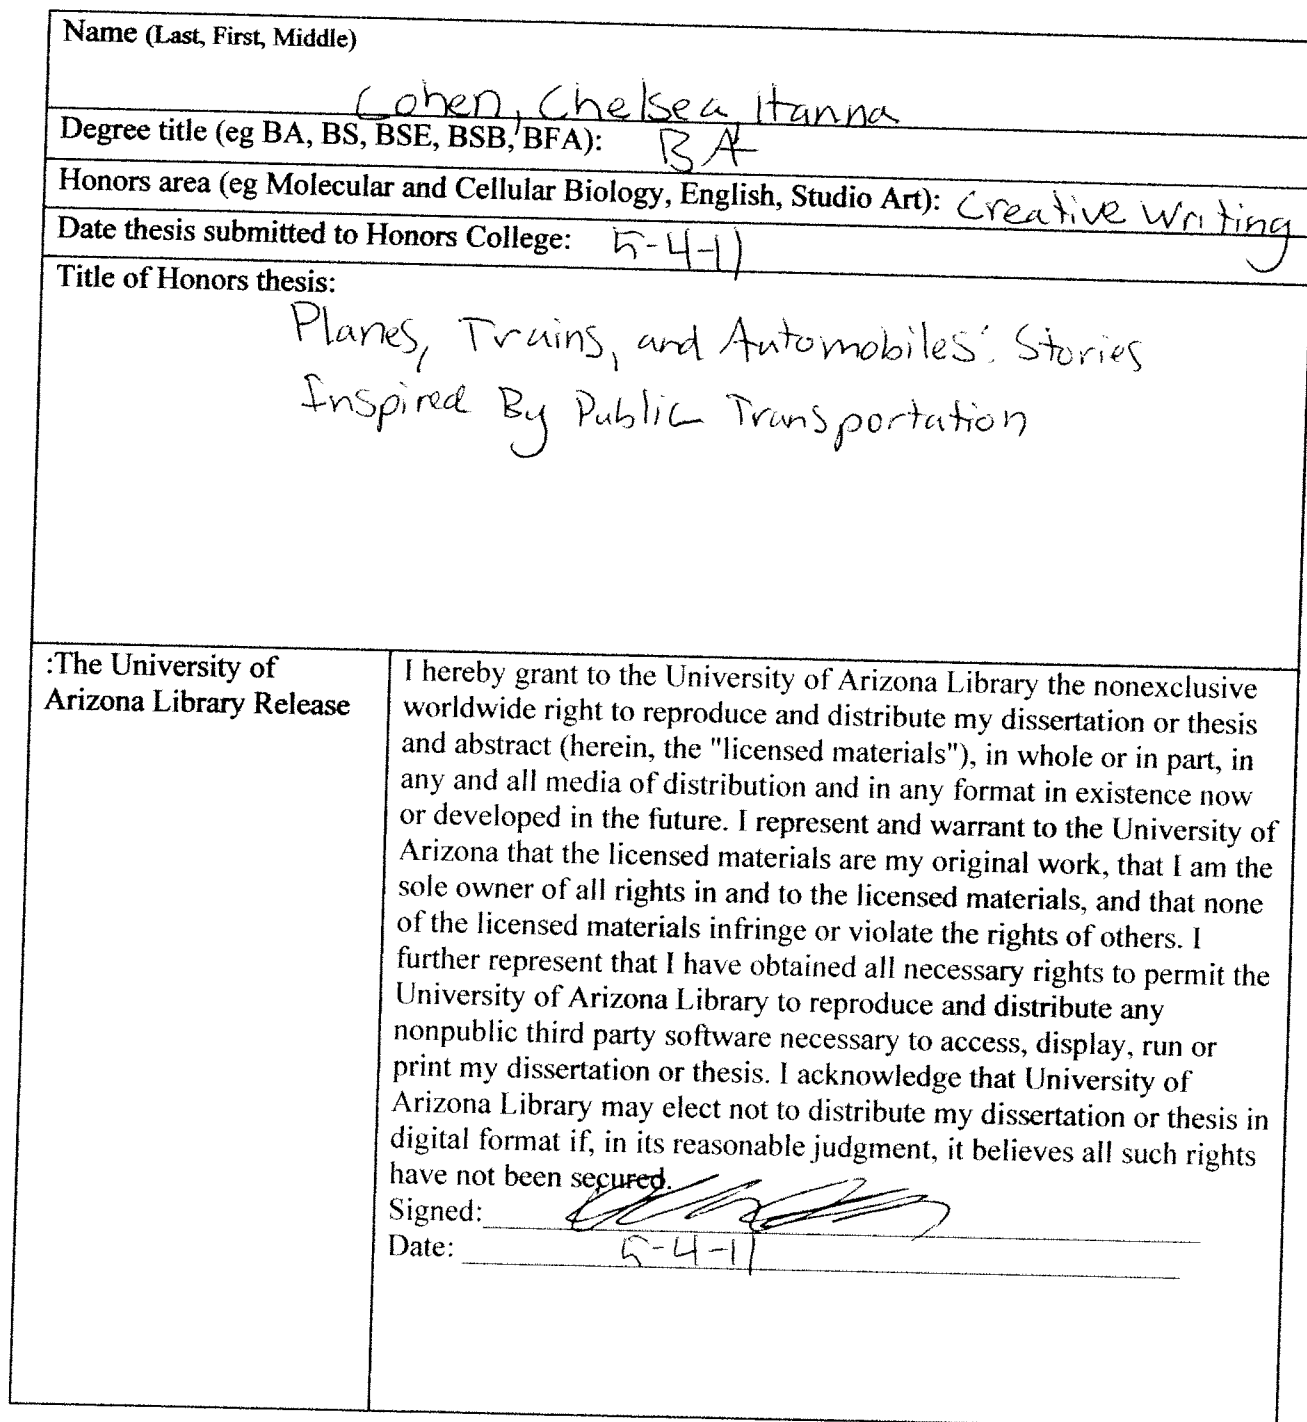 Name (Last, First, Middle)
Cohen, Chelsea, Hanna
Degree title (eg BA, BS, BSE, BSB, BFA): BA
Honors area (eg Molecular and Cellular Biology, English, Studio Art): Creative Writing
Date thesis submitted to Honors College: 5-4-11
Title of Honors thesis:
Planes, Trains, and Automobiles: Stories
Inspired By Public Transportation
:The University of
Arizona Library Release
I hereby grant to the University of Arizona Library the nonexclusive
worldwide right to reproduce and distribute my dissertation or thesis
and abstract (herein, the "licensed materials"), in whole or in part, in
any and all media of distribution and in any format in existence now
or developed in the future. I represent and warrant to the University of
Arizona that the licensed materials are my original work, that I am the
sole owner of all rights in and to the licensed materials, and that none
of the licensed materials infringe or violate the rights of others. I
further represent that I have obtained all necessary rights to permit the
University of Arizona Library to reproduce and distribute any
nonpublic third party software necessary to access, display, run or
print my dissertation or thesis. I acknowledge that University of
Arizona Library may elect not to distribute my dissertation or thesis in
digital format if, in its reasonable judgment, it believes all such rights
have not been secured.
Signed:
Date: 5-4-11